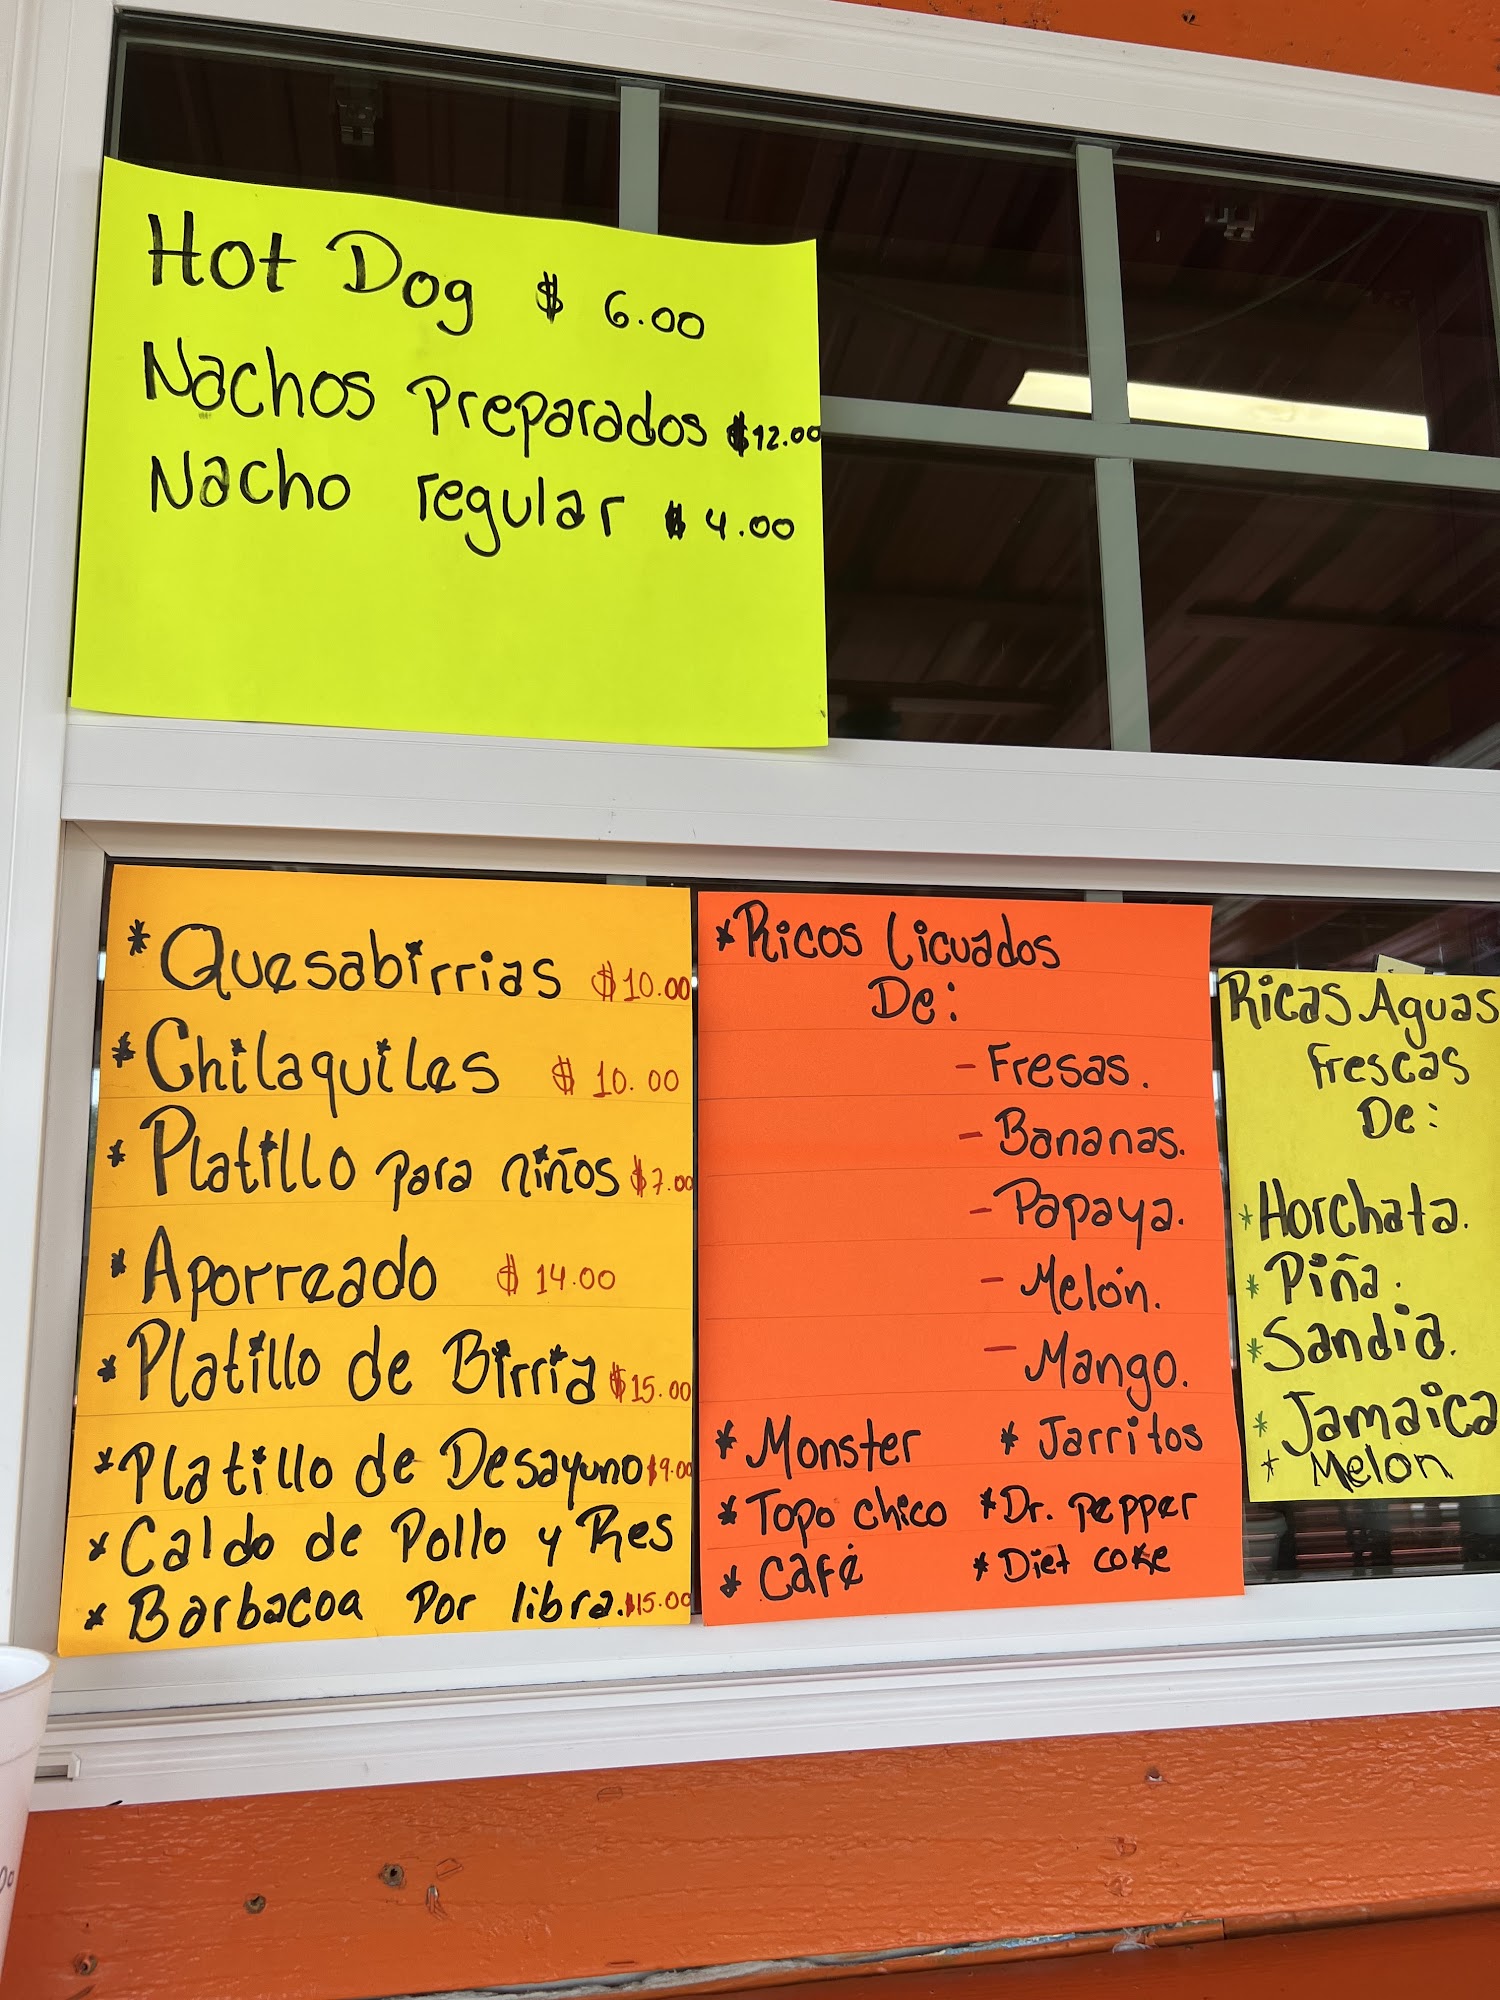 Hot Dog $ 6.00
Nachos Preparados $12.00
Nacho regular $ 4.00
* Quesabirrias $10.00
* Chilaquiles $ 10.00
* Platillo para niños $7.00
* Aporreado $ 14.00
* Platillo de Birria $15.00
* Platillo de Desayuno $9.00
* Caldo de Pollo y Res
* Barbacoa Por libra. $15.00
* Ricos Licuados
De:
- Fresas.
- Bananas.
- Papaya.
- Melón.
- Mango.
* Monster * Jarritos
* Topo chico * Dr. Pepper
* Café * Diet coke
Ricas Aguas
Frescas
De:
* Horchata.
* Piña.
* Sandia.
* Jamaica
* Melon